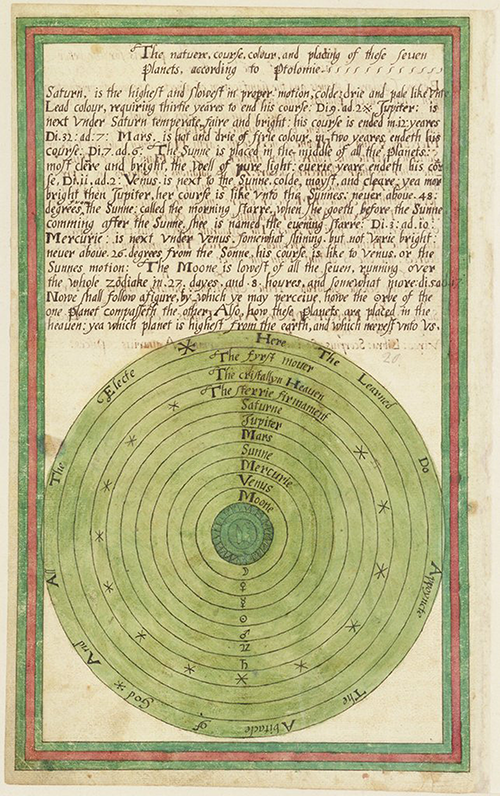 The nature, course, colour, and placing of these seven
Planets, according to Ptolomie
Saturn, is the highest and slowest in proper motion, colde, drie and pale like vnto
Lead colour, requiring thirtie yeares to end his course. Di.9.ad.2 Jupiter: is
next vnder Saturn temperate, faire and bright: his course is ended in.12.yeares
Di.32.ad.7: Mars, is hot and drie of firie colour, in two yeares endeth his
course. Di.7.ad.6. The Sunne is placed in the middle of all the Planets:
most clere and bright, the well of pure light: euerie yeare endeth his cor
se, Di.ii.ad.2: Venus is next to the Sunne, colde, moyst, and cleare, yea mor
bright then Jupiter, her course is like vnto the Sunnes: neuer aboue.48:
degrees, the Sunne: called the morning starre, when she goeth before the Sunne
comming after the Sunne, she is named the euening starre: Di:3:ad.10:
Mercurie: is next vnder Venus, somewhat shining, but not verie bright:
neuer aboue.26.degrees, from the Sonne, his course is like to Venus, or the
Sunnes motion: The Moone is lowest of all the seuen, running ouer
the whole zodiake in.27.dayes, and 8.houres, and somewhat more:
Nowe shall follow a figure, by which ye may perceiue, howe the orbe of the
one Planet compasseth the other: Also, how these Planets are placed in the
heauen: yea which planet is highest from the earth, and which neerest vnto vs.
20
Here The Learned Do Appoyncte The Abitacle of God And All The Electe
The fyrst mouer
The cristallyn Heauen
The sterrie firmament
Saturne
Jupiter
Mars
Sunne
Mercurie
Venus
Moone
☾
♀
☿
☉
♂
♃
♄